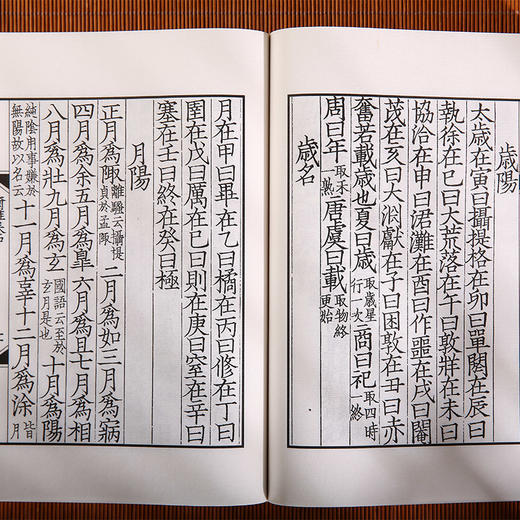 歲陽
太歲在寅曰攝提格在卯曰單閼在辰曰
執徐在巳曰大荒落在午曰敦牂在未曰
協洽在申曰涒灘在酉曰作噩在戌曰閹
茂在亥曰大淵獻在子曰困敦在丑曰赤
奮若載歲也夏曰歲取歲星行一次商曰祀取四時一終
周曰年取禾一熟唐虞曰載取物終更始
歲名
月在甲曰畢在乙曰橘在丙曰修在丁曰
圉在戊曰厲在己曰則在庚曰窒在辛曰
塞在壬曰終在癸曰極
月陽
正月爲陬離騷云攝提貞於孟陬二月爲如三月爲寎
四月爲余五月爲皐六月爲且七月爲相
八月爲壯九月爲玄國語云至於玄月是也十月爲陽
純陰用事嫌於無陽故以名云十一月爲辜十二月爲涂皆月